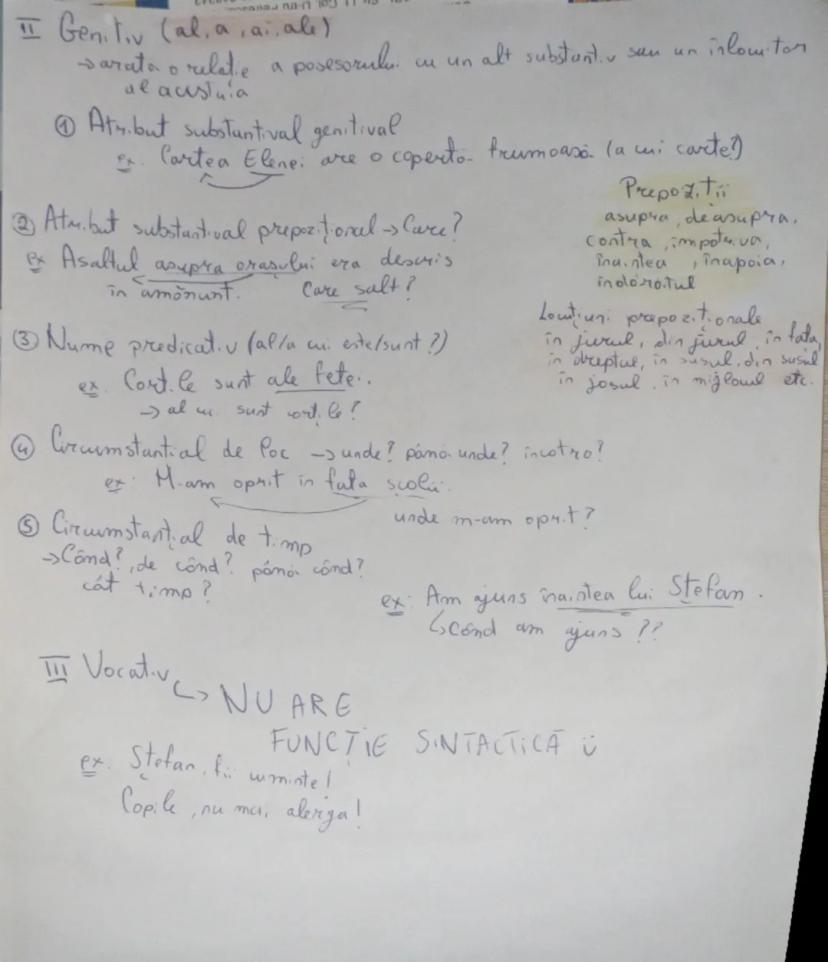 II Genitiv (al, a, ai, ale)
→ arată o relație a posesorului cu un alt substantiv sau un înlocuitor
al acestuia
① Atribut substantival genitival
ex. Cartea Elenei are o copertă frumoasă. (a cui carte?)
② Atribut substantival prepozițional → Care?
ex Asaltul asupra orașului era descris
în amănunt. Care salt?
Prepoziții
asupra, deasupra,
contra, împotriva,
înaintea, înapoia,
îndărătul
Locțiuni prepoziționale
în jurul, din jurul, în fața,
în dreptul, în susul, din susul
în josul, în mijlocul etc.
③ Nume predicativ (al/a cui este/sunt?)
ex. Cărțile sunt ale fetei.
→ al cui sunt cărțile?
④ Circumstanțial de loc → unde? până unde? încotro?
ex: M-am oprit în fața școlii.
unde m-am oprit?
⑤ Circumstanțial de timp
→ Când?, de când? până când?
cât timp?
ex: Am ajuns înaintea lui Ștefan.
↳ când am ajuns ??
III Vocativ
↳ NU ARE
FUNCȚIE SINTACTICĂ ü
ex. Ștefan, fii cuminte!
Copile, nu mai alerga!